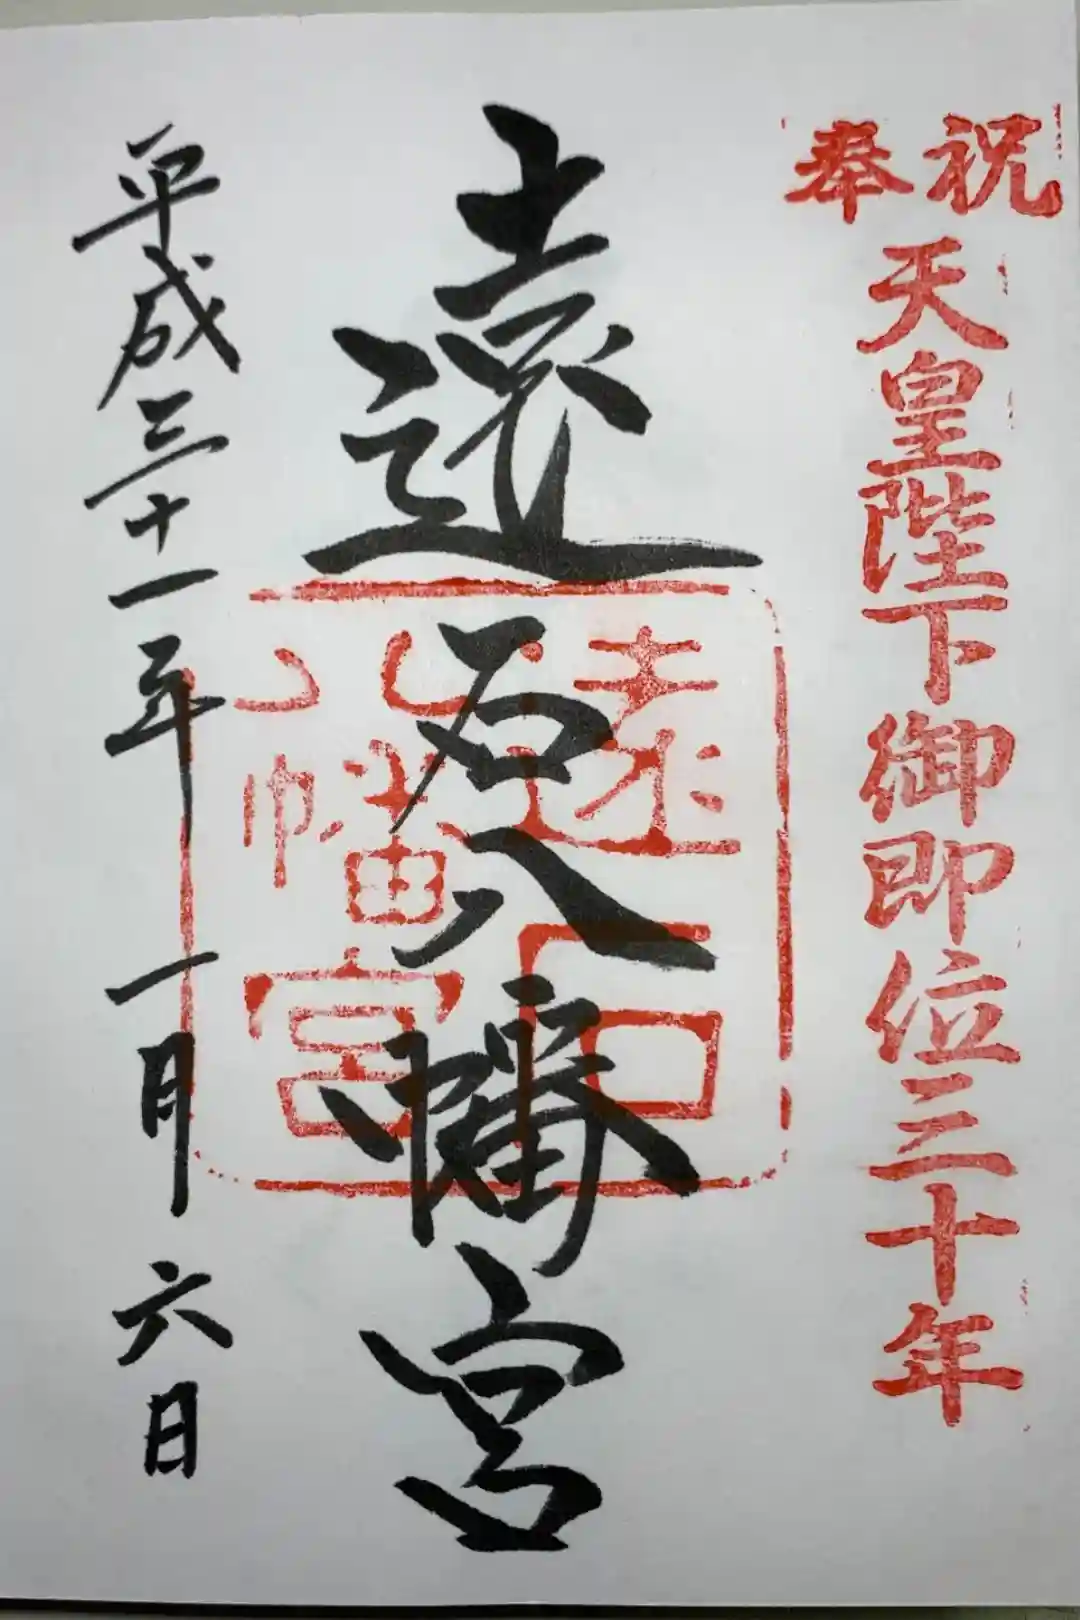 奉祝
天皇陛下御即位三十年
遠石八幡宮
遠石
八幡宮
平成三十一年一月六日